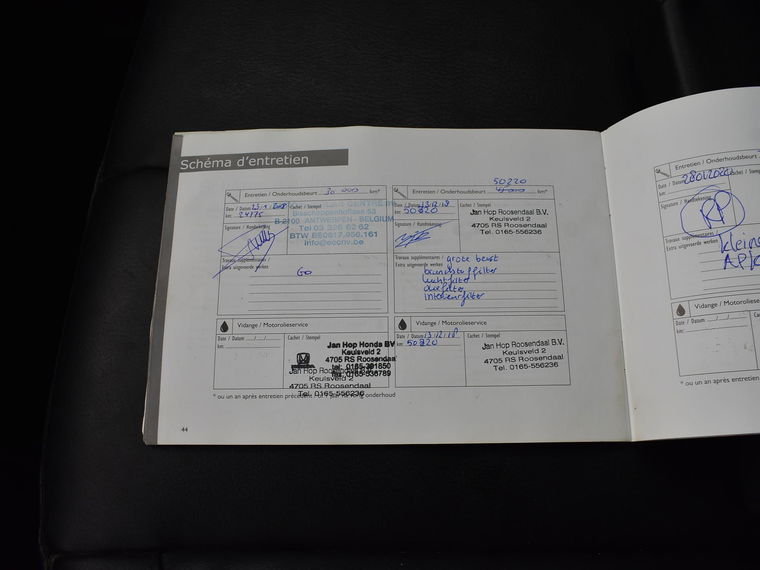 Schéma d'entretien
Entretien / Onderhoudsbeurt 30 000 km*
Date / Datum
km: 24775
Cachet / Stempel
CENTRE
Bisschoppenhoflaan 53
B-2100 ANTWERPEN - BELGIUM
Tel 03 326 62 62
info@eccnv.be
Signature / Handtekening
Travaux supplémentaires /
Extra uitgevoerde werken
GO
Vidange / Motorolieservice
Date / Datum .../.../...
km:
Cachet / Stempel
Jan Hop Honda BV
Keulsveld 2
4705 RS Roosendaal
Jan Hop Roosendaal
Keulsveld 2
4705 RS Roosendaal
Tel. 0165-556236
50820
Entretien / Onderhoudsbeurt km*
Date / Datum 13.12.18
km: 50820
Cachet / Stempel
Jan Hop Roosendaal B.V.
Keulsveld 2
4705 RS Roosendaal
Tel. 0165-556236
Signature / Handtekening
Travaux supplémentaires / grote beurt
Extra uitgevoerde werken
brandstoffilter
luchtfilter
oliefilter
interieurfilter
Vidange / Motorolieservice
Date / Datum 13.12.18
km: 50820
Cachet / Stempel
Jan Hop Roosendaal B.V.
Keulsveld 2
4705 RS Roosendaal
Tel. 0165-556236
* ou un an après entretien onderhoud
44
Entretien / Onderhoudsbeurt
Date / Datum 28012020
km:
Cachet / Stempel
Signature / Handtekening
RP
Travaux supplémentaires /
Extra uitgevoerde werken
kleine
APK
Vidange / Motorolieservice
Date / Datum .../.../...
km:
* ou un an après entretien